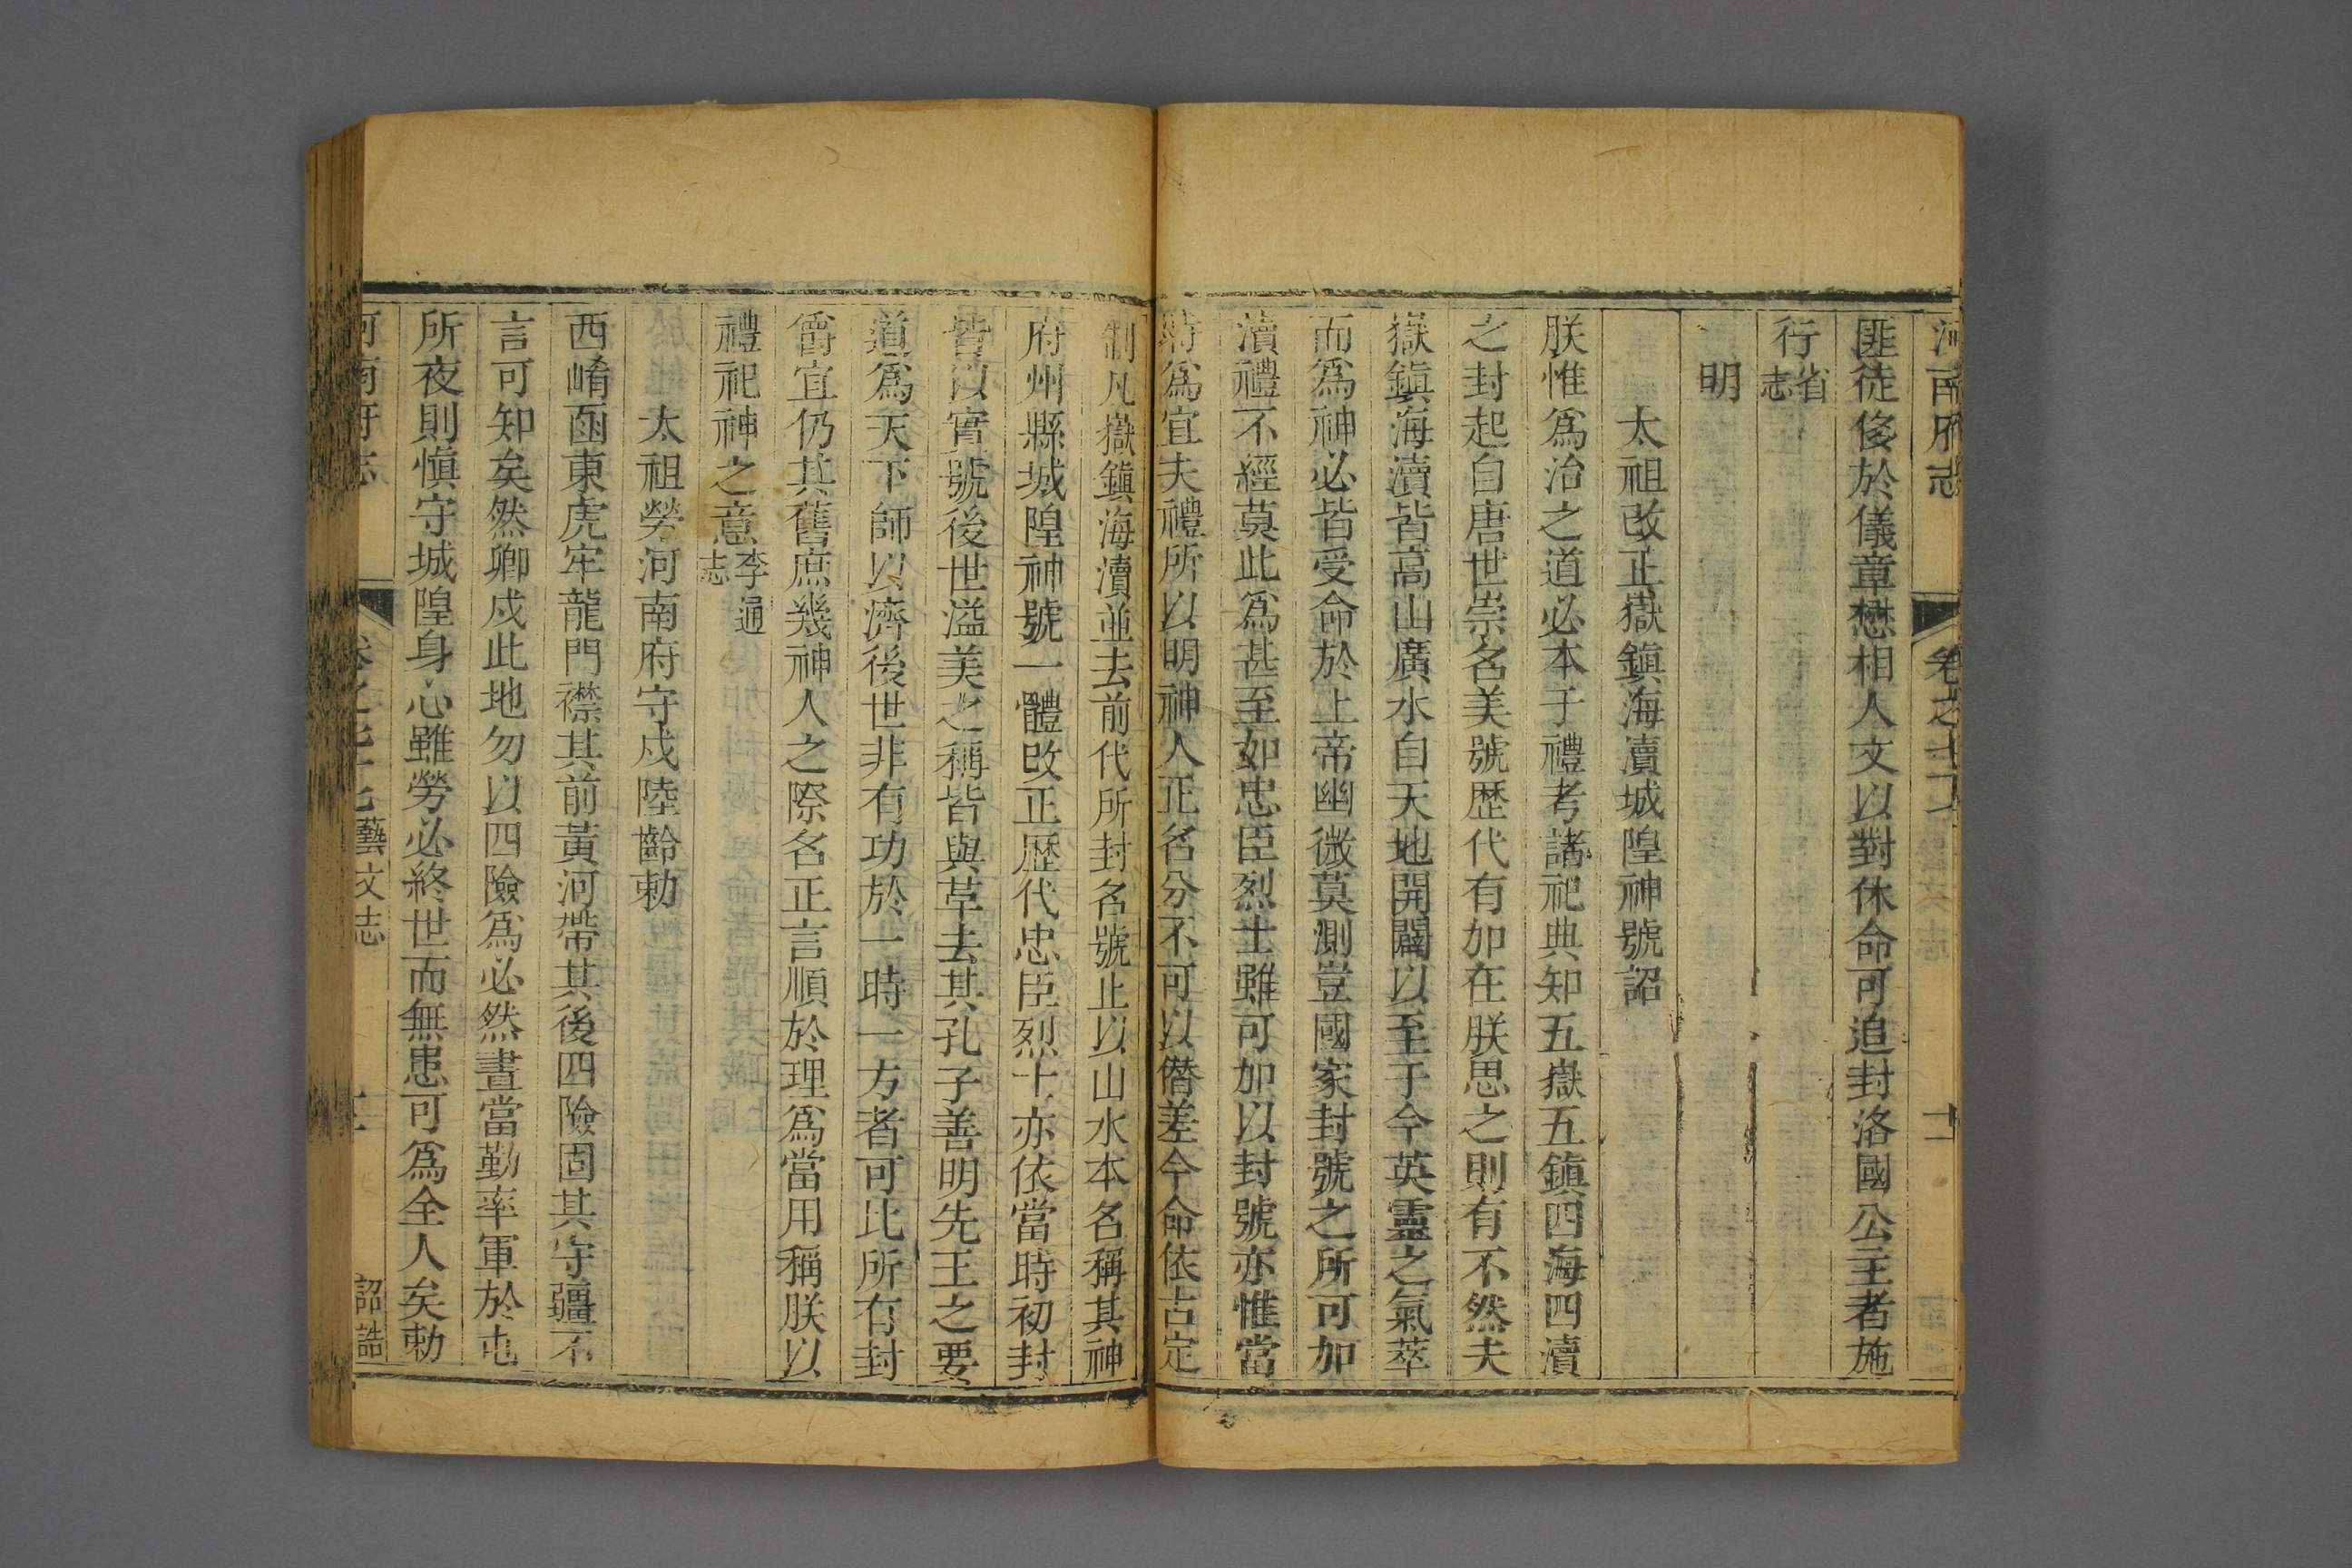 河南府志 卷之七十七 十二
匪徒侈於儀章懋相人文以對休命可追封洛國公主者施
行省志
明
太祖改正嶽鎮海瀆城隍神號詔
朕惟爲治之道必本于禮考諸祀典知五嶽五鎮四海四瀆
之封起自唐世崇名美號歷代有加在朕思之則有不然夫
嶽鎮海瀆皆高山廣水自天地開闢以至于今英靈之氣萃
而爲神必皆受命於上帝幽微莫測豈國家封號之所可加
瀆禮不經莫此爲甚至如忠臣烈士雖可加以封號亦惟當
時爲宜夫禮所以明神人正名分不可以僭差今命依古定
制凡嶽鎮海瀆並去前代所封名號止以山水本名稱其神
府州縣城隍神號一體改正歷代忠臣烈士亦依當時初封
皆以實號後世溢美之稱皆與革去其孔子善明先王之要
道爲天下師以濟後世非有功於一時一方者可比所有封
爵宜仍其舊庶幾神人之際名正言順於理爲當用稱朕以
禮祀神之意李通志
太祖勞河南府守戍陸齡勅
西崤函東虎牢龍門襟其前黃河帶其後四險固其守疆不
言可知矣然卿戍此地勿以四險爲必然晝當勤率軍於屯
所夜則慎守城隍身心雖勞必終世而無患可爲全人矣勅
河南府志 卷之 藝文志 詔誥